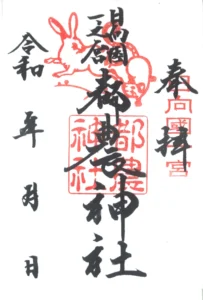 奉拝
日向國一宮
日向國
一之宮
都農神社
都農
神社
令和 年 月 日